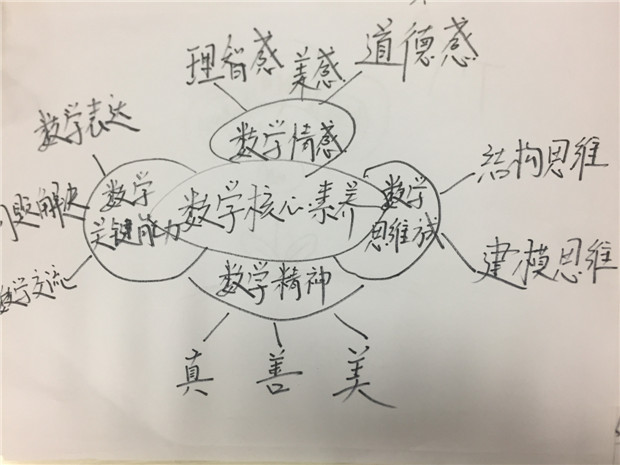 理智感
美感
道德感
数学情感
数学表达
问题解决
数学交流
数学
关键能力
数学核心素养
数学
思维
结构思维
建模思维
数学精神
真
善
美